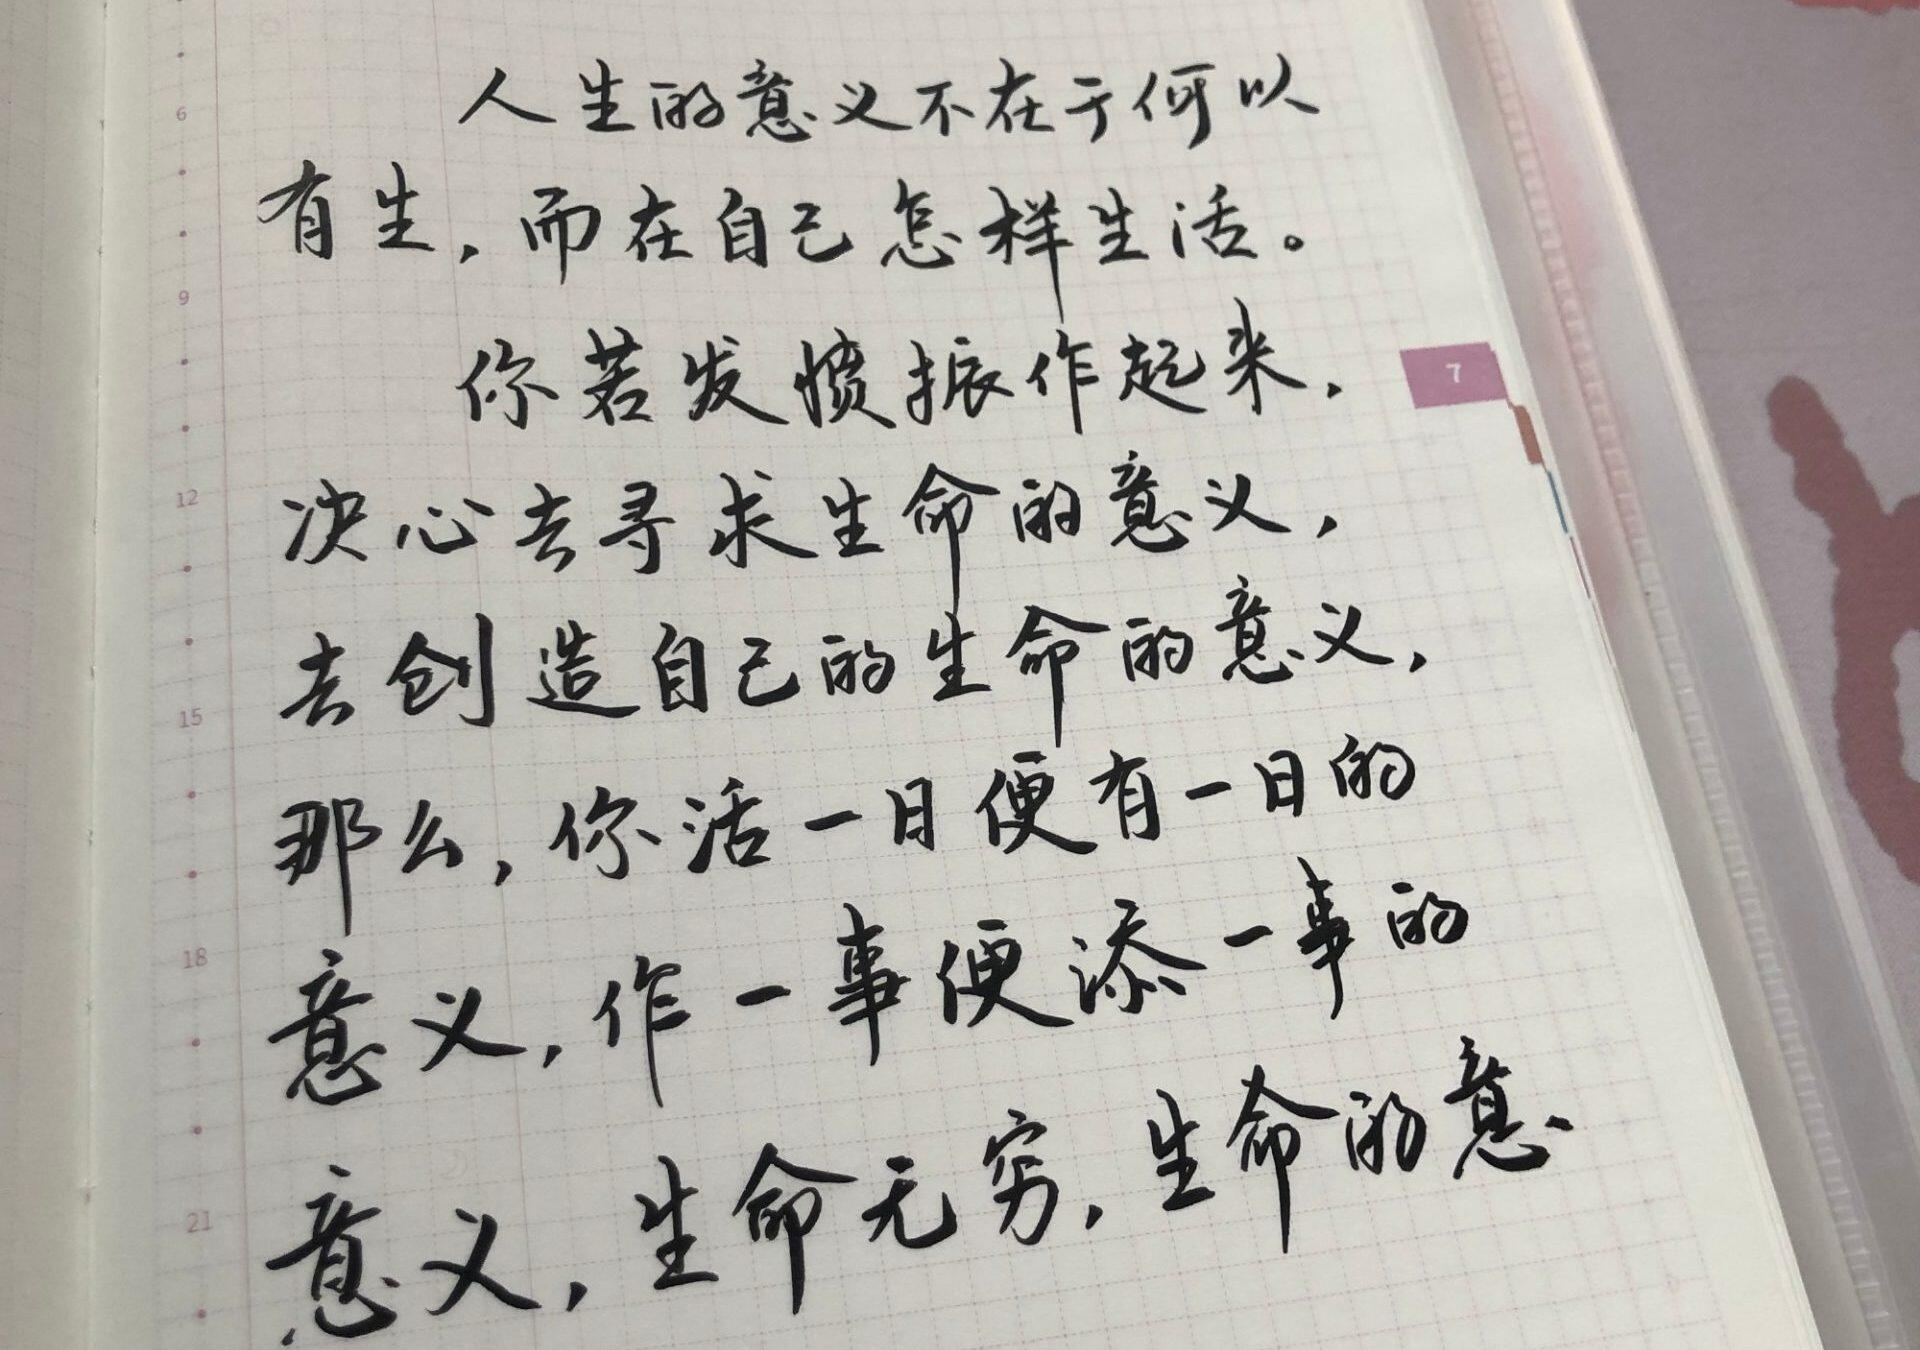 人生的意义不在于何以
有生，而在自己怎样生活。
你若发愤振作起来，
决心去寻求生命的意义，
去创造自己的生命的意义，
那么，你活一日便有一日的
意义，作一事便添一事的
意义，生命无穷，生命的意
6
9
12
15
18
21
7